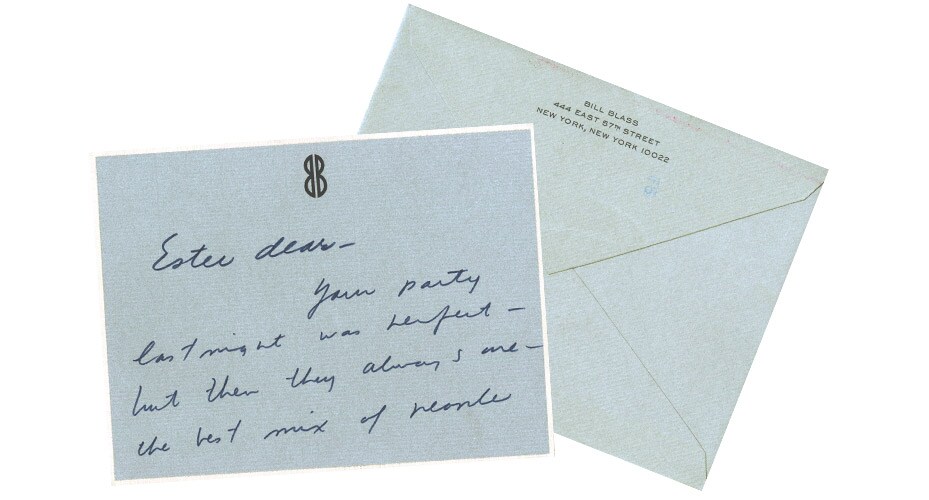 BB
Estee dear—
Your party
last night was perfect—
but then they always are—
the best mix of people
BILL BLASS
444 EAST 57TH STREET
NEW YORK, NEW YORK 10022